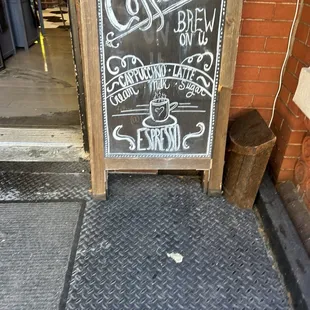 Coffee
BREW
ON U
CAPPUCCINO - LATTE
Cream Milk Sugar
ESPRESSO